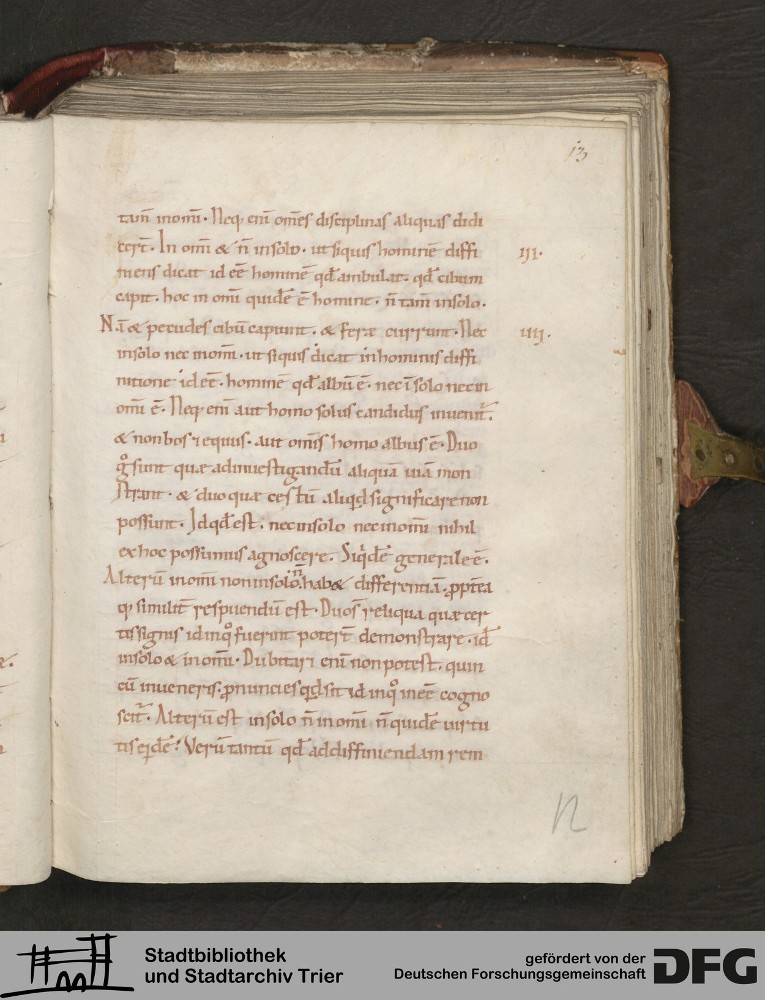 13
tam̄ inom̄i. Neq; eni omēs disciplinas aliquas didi
cert̄. In om̄i & n̄ insolo. ut siquis hominē diffi
III.
niens dicat id eē hominē qd̄ ambulat. qd̄ cibum
capit. hoc in omī quidē ē homine. n̄ tam̄ insolo.
Nā & pecudes cibū capiunt. & feræ currunt. Nec
IIII.
insolo nec inom̄i. ut siquis dicat inhominis diffi
nitione id eē. hominē qd̄ albū ē. nec ī solo nec in
om̄i ē. Neq; enī aut homo solus candidus inuenit̄.
& non bos & equus. aut omīs homo albus ē. Duo
g̊ sunt quæ adinuestigandū aliquā uiā mon
strant. & duo quæ certū aliqd significare non
possunt. Id qd̄ est. nec insolo nec inom̄i nihil
ex hoc possumus agnoscere. Siqdē generale ē.
Alterū in omī non insolo. n̄ hab& differentiā. ppt̄ea
q; similit̄ respuendū est. Duo s̄ reliqua quæ cer
tis signis id inq̊ fuerint potert̄ demonstrare. id̄
insolo & in om̄i. Dubitari enī non potest. quin
cū inueneris. pnuncies qd sit id inq̊ ineē cogno
scit̄. Alterū est insolo n̄ in omī n̄ quidē uirtu
tis eidē. Verū tantū qd̄ addiffiniendam rem
n
Stadtbibliothek
und Stadtarchiv Trier
gefördert von der
Deutschen Forschungsgemeinschaft DFG